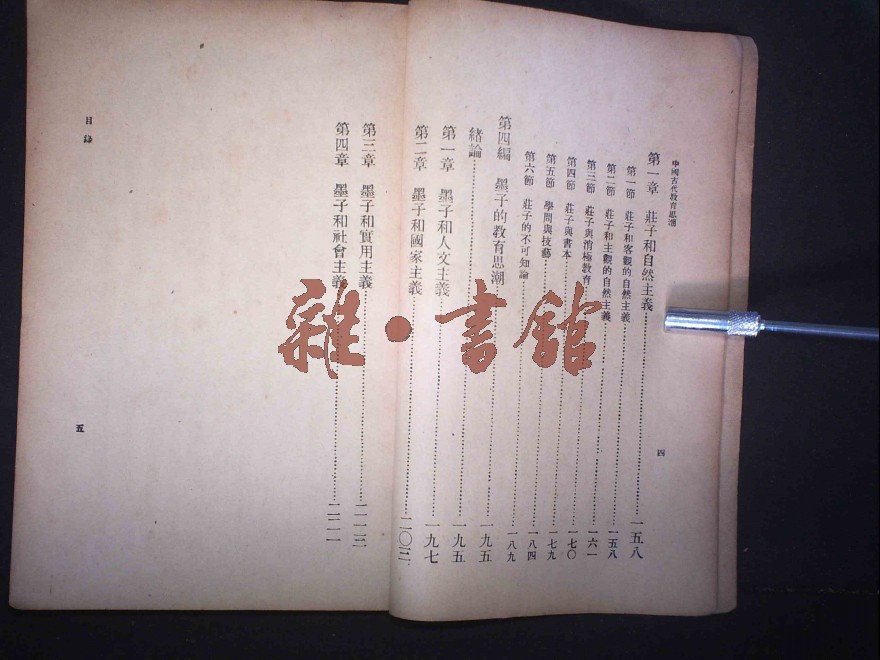 中國古代教育思潮
第一章 莊子和自然主義……一五八
第一節 莊子和客觀的自然主義……一五八
第二節 莊子和主觀的自然主義……一六一
第三節 莊子與消極教育……一七〇
第四節 莊子與書本……一七九
第五節 學問與技藝……一八四
第六節 莊子的不可知論……一八九
第四編 墨子的教育思潮……一九五
緒論……一九五
第一章 墨子和人文主義……一九七
第二章 墨子和國家主義……二〇三
四
第三章 墨子和實用主義……二一三
第四章 墨子和社會主義……二二一
目錄
五
雜·書館